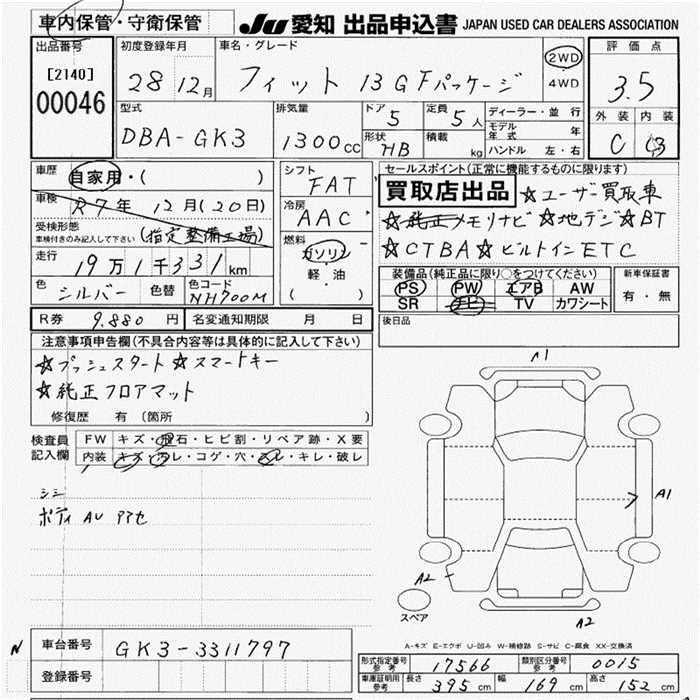 車内保管・守衛保管
JU 愛知 出品申込書 JAPAN USED CAR DEALERS ASSOCIATION
出品番号 初度登録年月 車名・グレード 評価点
[2140] 28 12月 フィット 13GFパッケージ 2WD 3.5
4WD
00046 型式 排気量 ドア 定員 ディーラー・並行 外装 内装
DBA-GK3 1300cc 5 5人 モデル年式 年 C C3
形状 HB 積載 kg ハンドル 左・右
車歴 自家用・( )
車検 R7年 12月(20日)
受検形態 (指定整備工場)
車検付きのみ記入して下さい
走行 19万1千331km
色 シルバー 色替 色コード NH700M
シフト FAT
冷房 AAC
燃料 ガソリン
軽・油
( )
セールスポイント(正常に機能するものに限ります)
買取店出品 ☆ユーザー買取車
☆純正メモリナビ ☆地デジ ☆BT
☆CTBA ☆ビルトインETC
装備品(純正品に限り○をつけてください) 新車保証書
PS PW エアB AW 有・無
SR ナビ TV カワシート
R券 9.880円 名変通知期限 月 日 後日品
注意事項申告欄(不具合内容等は具体的に記入して下さい)
☆プッシュスタート ☆スマートキー
☆純正フロアマット
修復歴 有(箇所
検査員記入欄 FW キズ・飛石・ヒビ割・リペア跡・X要
内装 キズ・汚レ・コゲ・穴・スレ・キレ・破レ
シミ
ボディ AU アアセ
A1
A1
A2
スペア
A2
A-キズ E-エクボ U-凹み W-補修跡 S-サビ C-腐食 XX-交換済
N 車台番号 GK3-3311797
登録番号
形式指定番号 参考 17566 類別区分番号 参考 0015
車庫証明用 参考 長さ 395cm 幅 169cm 高さ 152cm